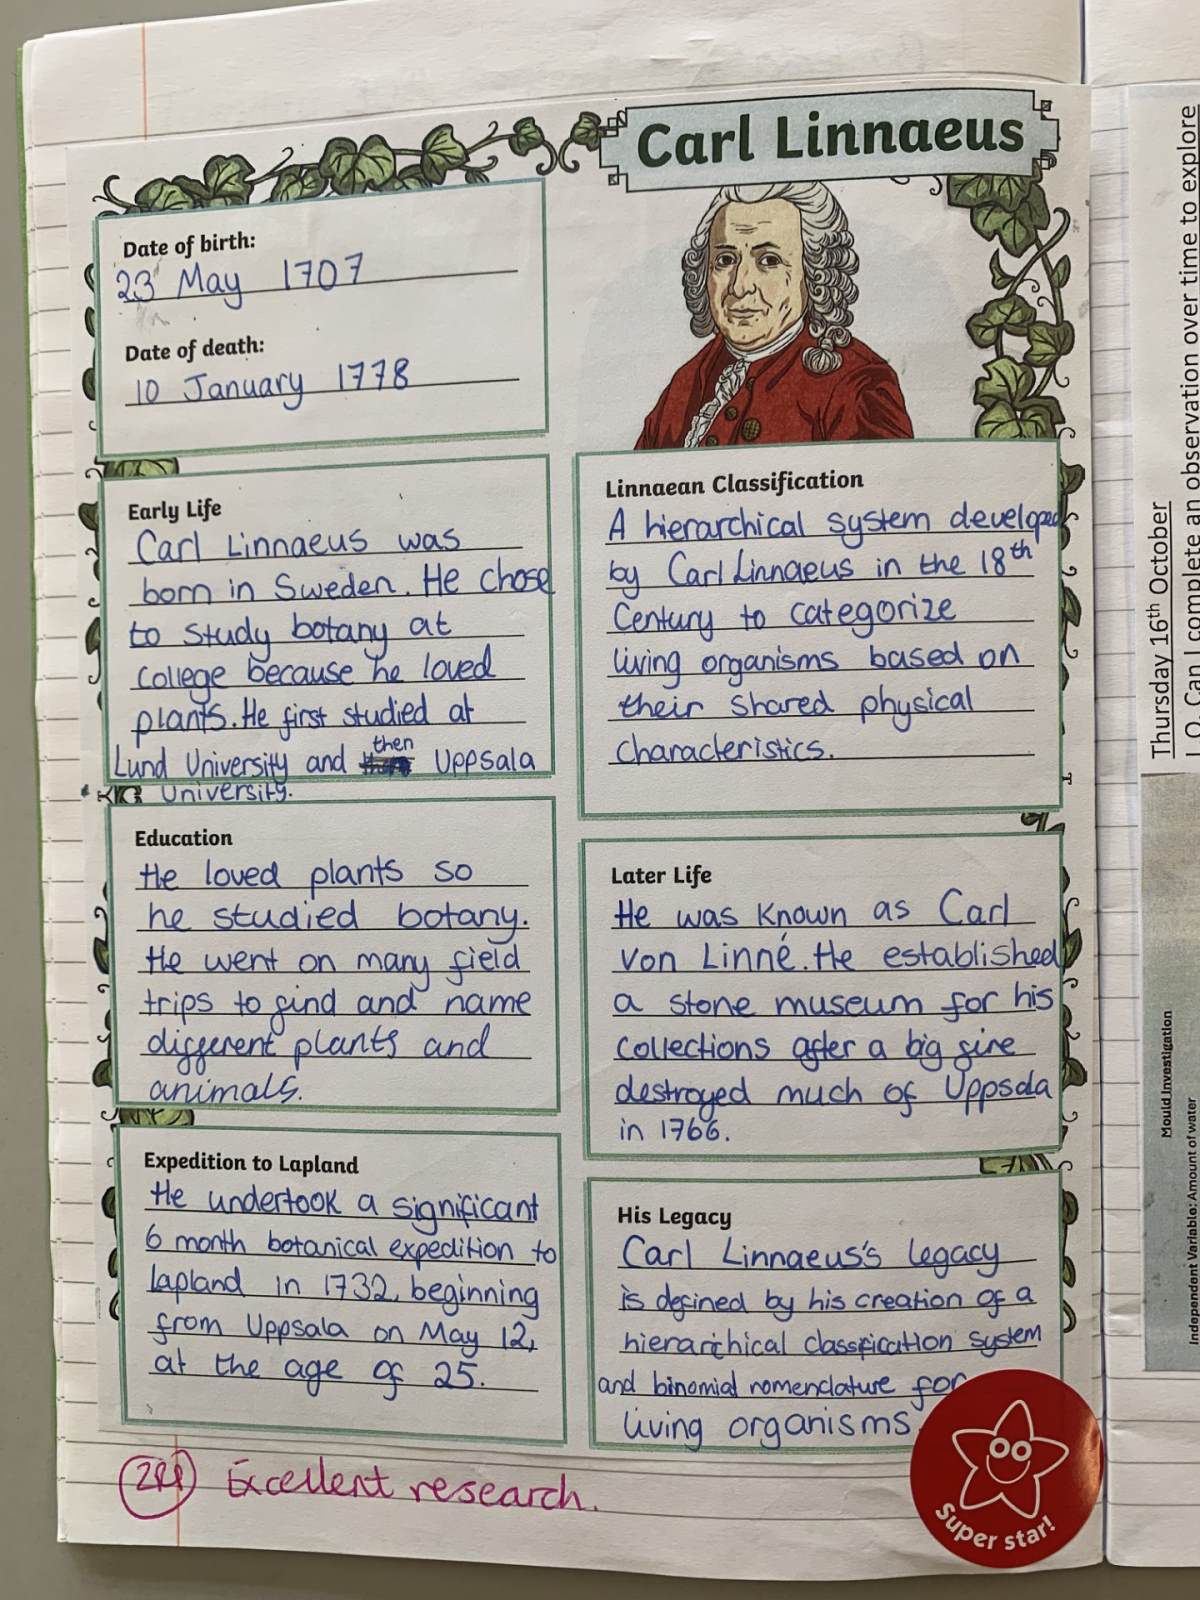 Carl Linnaeus
Date of birth:
23 May 1707
Date of death:
10 January 1778
Early Life
Carl Linnaeus was
born in Sweden. He chose
to study botany at
college because he loved
plants. He first studied at
Lund University and then Uppsala
University.
Education
He loved plants so
he studied botany.
He went on many field
trips to find and name
different plants and
animals.
Expedition to Lapland
He undertook a significant
6 month botanical expedition to
Lapland in 1732, beginning
from Uppsala on May 12,
at the age of 25.
Linnaean Classification
A hierarchical system developed
by Carl Linnaeus in the 18th
Century to categorize
living organisms based on
their shared physical
characteristics.
Later Life
He was known as Carl
von Linné. He established
a stone museum for his
collections after a big fire
destroyed much of Uppsala
in 1766.
His Legacy
Carl Linnaeus's legacy
is defined by his creation of a
hierarchical classification system
and binomial nomenclature for
living organisms
Excellent research.
Super star!
Thursday 16th October
L.O. Can I complete an observation over time to explore
Mould Investigation
Independent Variable: Amount of water